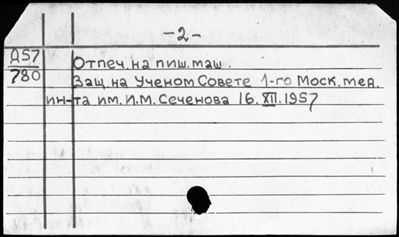 -2-
Д57
780
Отпеч. на пиш. маш.
Защ. на Ученом Совете 1-го Моск. мед.
ин-та им. И.М. Сеченова 16. XII. 1957